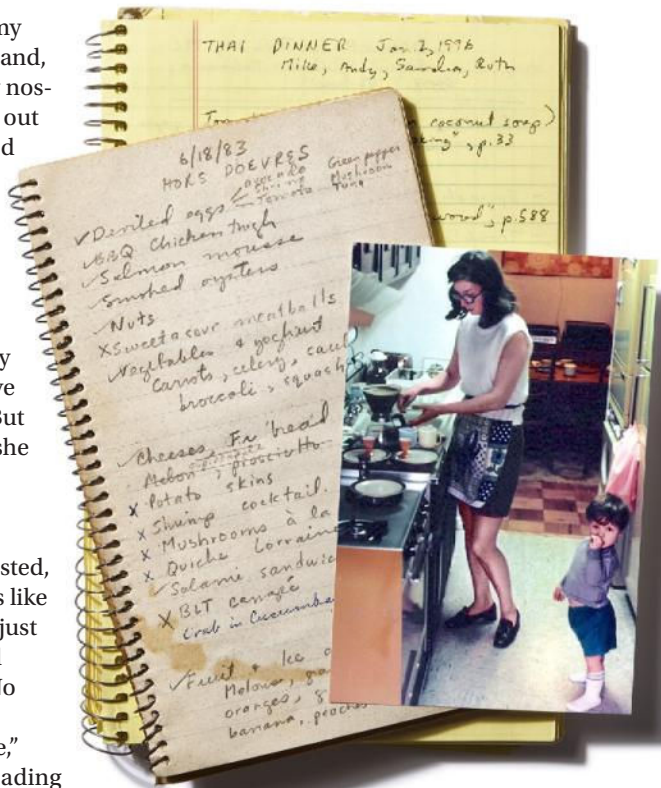 my
and,
nos-
out
d
y
ve
But
she
sted,
s like
just
d
No
e,”
ading
THAI DINNER Jan. 2, 1996
Mike, Andy, Sandra, Ruth
coconut soup)
p. 33
p. 588
6/18/83
HORS DOEVRES
✓ Deviled eggs avocado Green pepper
shrimp Mushroom
Tomato Tuna
✓ BBQ Chicken thigh
✓ Salmon mousse
✓ Smoked oysters
✓ Nuts
X Sweet & sour meatballs
✓ Vegetables & yoghurt
Carrots, celery, caul
broccoli, squash
✓ Cheeses, Fr bread
Melon, prosciutto
X Potato skins
X Shrimp cocktail
X Mushrooms à la
X Quiche Lorraine
✓ Salami sandwic
X BLT canapé
Crab in Cucumbe
✓ Fruit & Ice
Melons, gra
oranges, g
banana, peaches